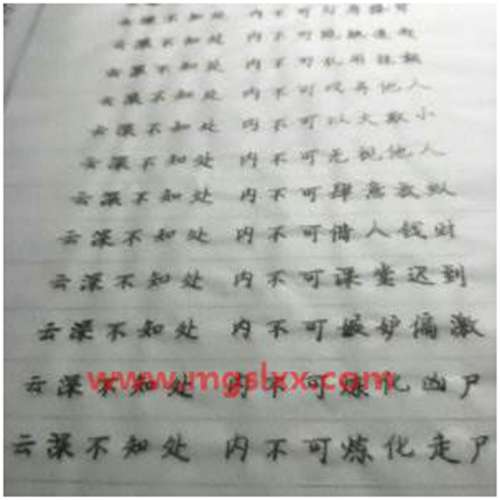 云深不知处 内不可
云深不知处 内不可
云深不知处 内不可
云深不知处 内不可 他人
云深不知处 内不可以大欺小
云深不知处 内不可无视他人
云深不知处 内不可肆意
云深不知处 内不可借人钱财
云深不知处 内不可课堂迟到
云深不知处 内不可嫉妒偏激
www.mgslxx.com
云深不知处 内不可炼化凶尸
云深不知处 内不可炼化走尸